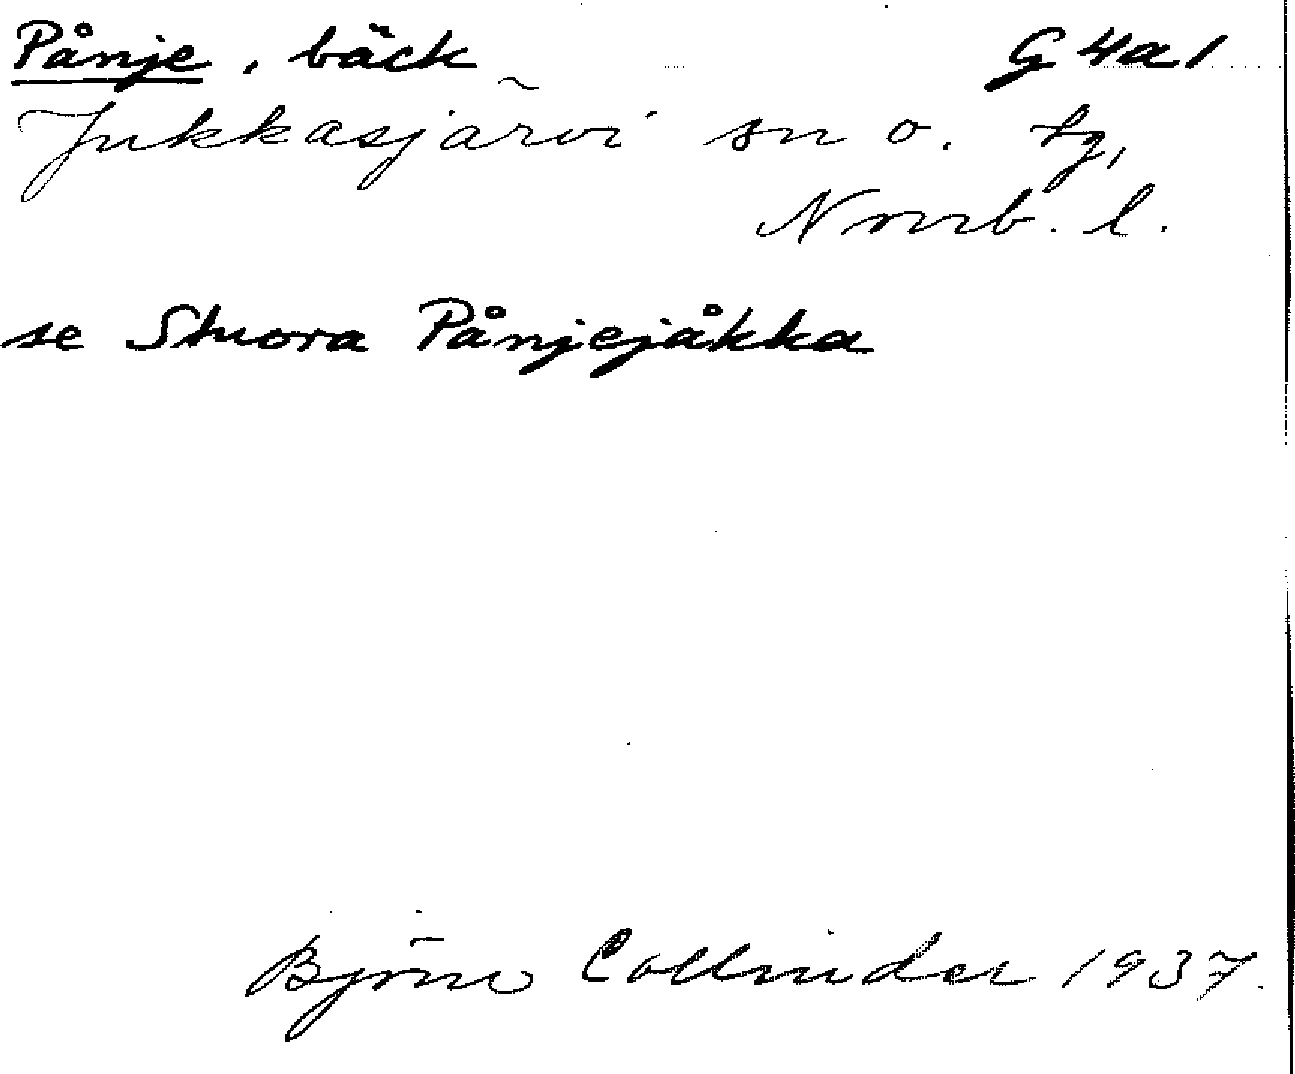 Pånje, bäck G4a1
Jukkasjärvi sn o. tg,
Norrb. l.
se Stuora Pånjejåkka
Björn Collinder 1937.